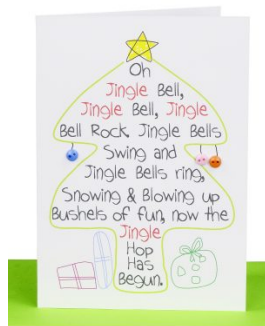 Oh
Jingle Bell,
Jingle Bell, Jingle
Bell Rock Jingle Bells
Swing and
Jingle Bells ring,
Snowing & Blowing up
Bushels of fun, now the
Jingle
Hop
Has
Begun.